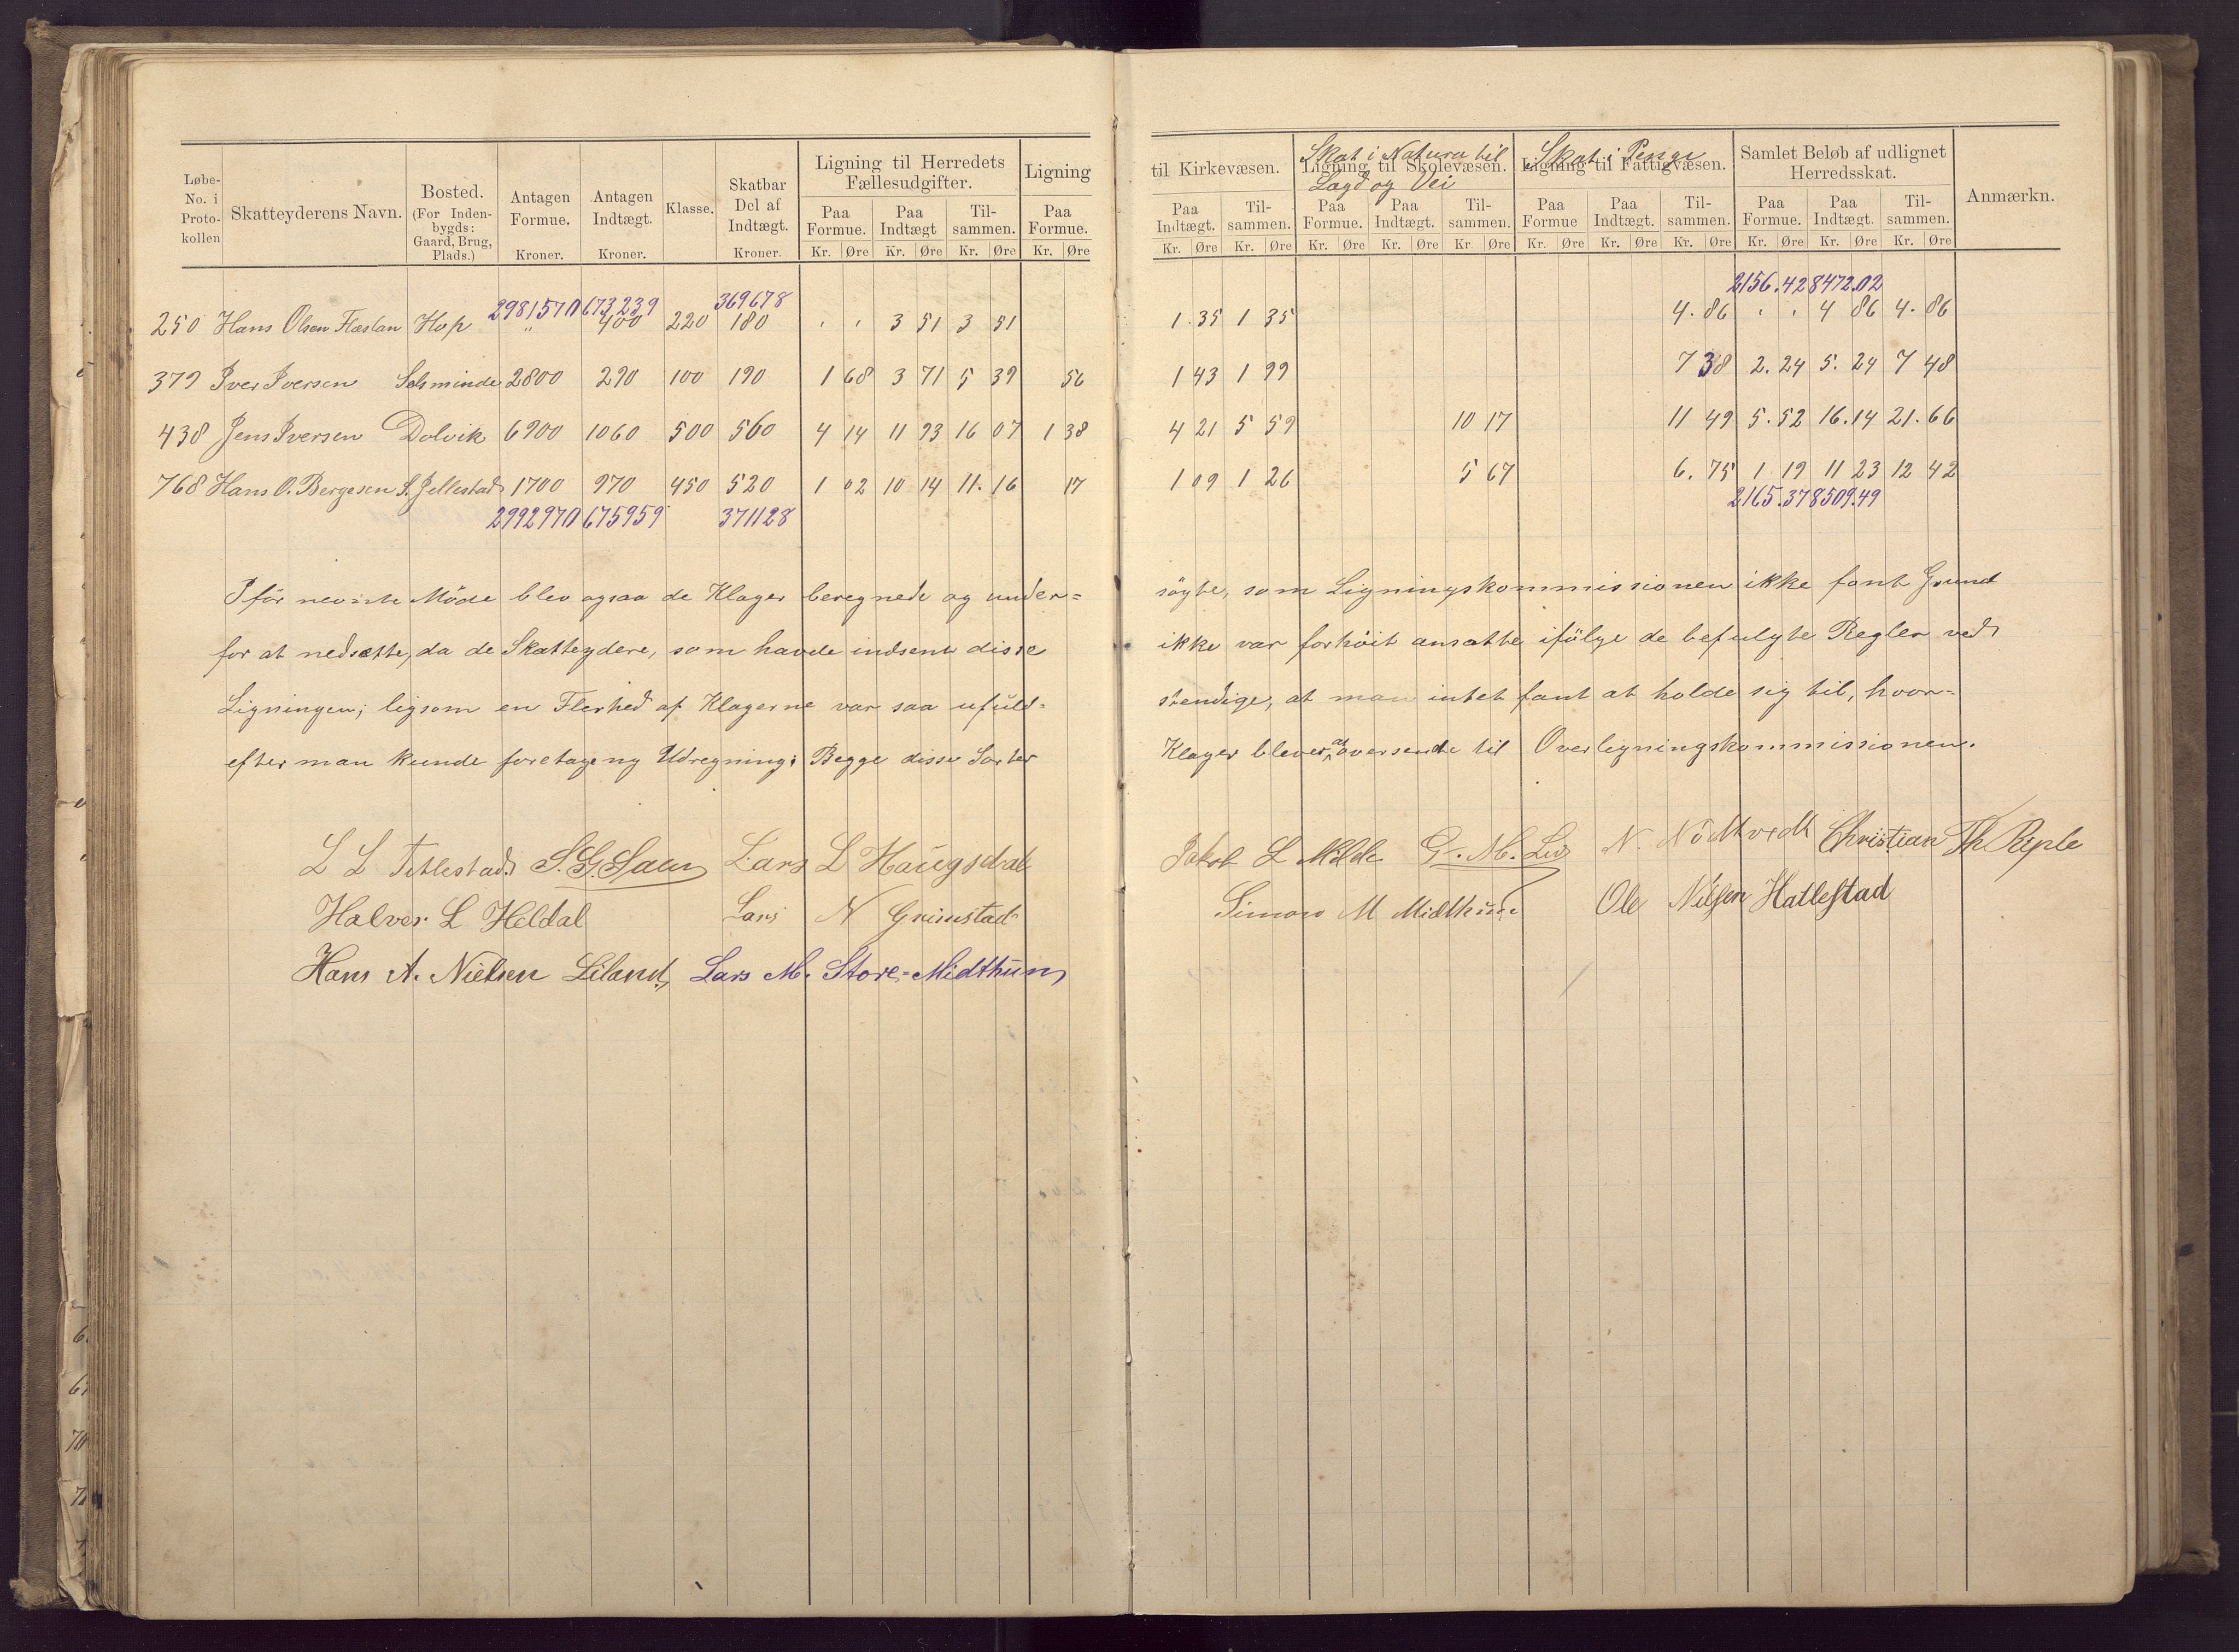 Løbe-No. i Proto-kollen | Skatteyderens Navn. | Bosted. (For Indenbygds: Gaard, Brug, Plads.) | Antagen Formue. Kroner. | Antagen Indtægt. Kroner. | Klasse. | Skatbar Del af Indtægt. Kroner. | Ligning til Herredets Fællesudgifter. | Ligning
Paa Formue. Kr. Øre | Paa Indtægt Kr. Øre | Til-sammen. Kr. Øre | Paa Formue. Kr. Øre
til Kirkevæsen. | Ligning til Skolevæsen. Skat i Natura til Lægd og Vei | Ligning til Fattigvæsen. Skat i Penge | Samlet Beløb af udlignet Herredsskat. | Anmærkn.
Paa Indtægt. Kr. Øre | Til-sammen. Kr. Øre | Paa Formue. Kr. Øre | Paa Indtægt. Kr. Øre | Til-sammen. Kr. Øre | Paa Formue Kr. Øre | Paa Indtægt. Kr. Øre | Til-sammen. Kr. Øre | Paa Formue. Kr. Øre | Paa Indtægt. Kr. Øre | Til-sammen. Kr. Øre
2981570 673239 369678 2156.42 8472.02
250 Hans Olsen Hop " 400 220 180 " " 3 51 3 51 1.35 1 35 4.86 " " 4 86 4.86
379 Iver Iversen Solsminde 2800 290 100 190 1 68 3 71 5 39 56 1 43 1 99 7 38 2.24 5.24 7 48
438 Jens Iversen Dolvik 6900 1060 500 560 4 14 11 93 16 07 1 38 4 21 5 59 10 17 11 49 5.52 16.14 21.66
768 Hans O. Bergesen S. Jellestad 1700 970 450 520 1 02 10 14 11.16 17 1 09 1 26 5 67 6.75 1 19 11 23 12 42
2992970 675959 371128 2165.37 8509.49
I før nevnte Møde blev ogsaa de Klager beregnede og under= søgte, som Ligningskommissionen ikke fant Grund
for at nedsætte, da de Skatteydere, som havde indsent disse ikke var forhöit ansatte ifölge de befulgte Regler ved
Ligningen; ligsom en Flerhed af Klagerne var saa ufuld= stendige, at man intet fant at holde sig til, hvor=
efter man kunde foretage ny Udregning; Begge disse Sorter Klager blever at oversende til Overligningskommissionen.
L L Titlestad. S. G. Lars L Haugsdal Jakob L Milde G. M. Lie N. Nödtvedt Christian Th Reple
Halvor L Heldal Lars N Grimstad Simon M Midthun Ole Nilsen Hatlestad
Hans A. Nielsen Liland, Lars M. Store-Midthun